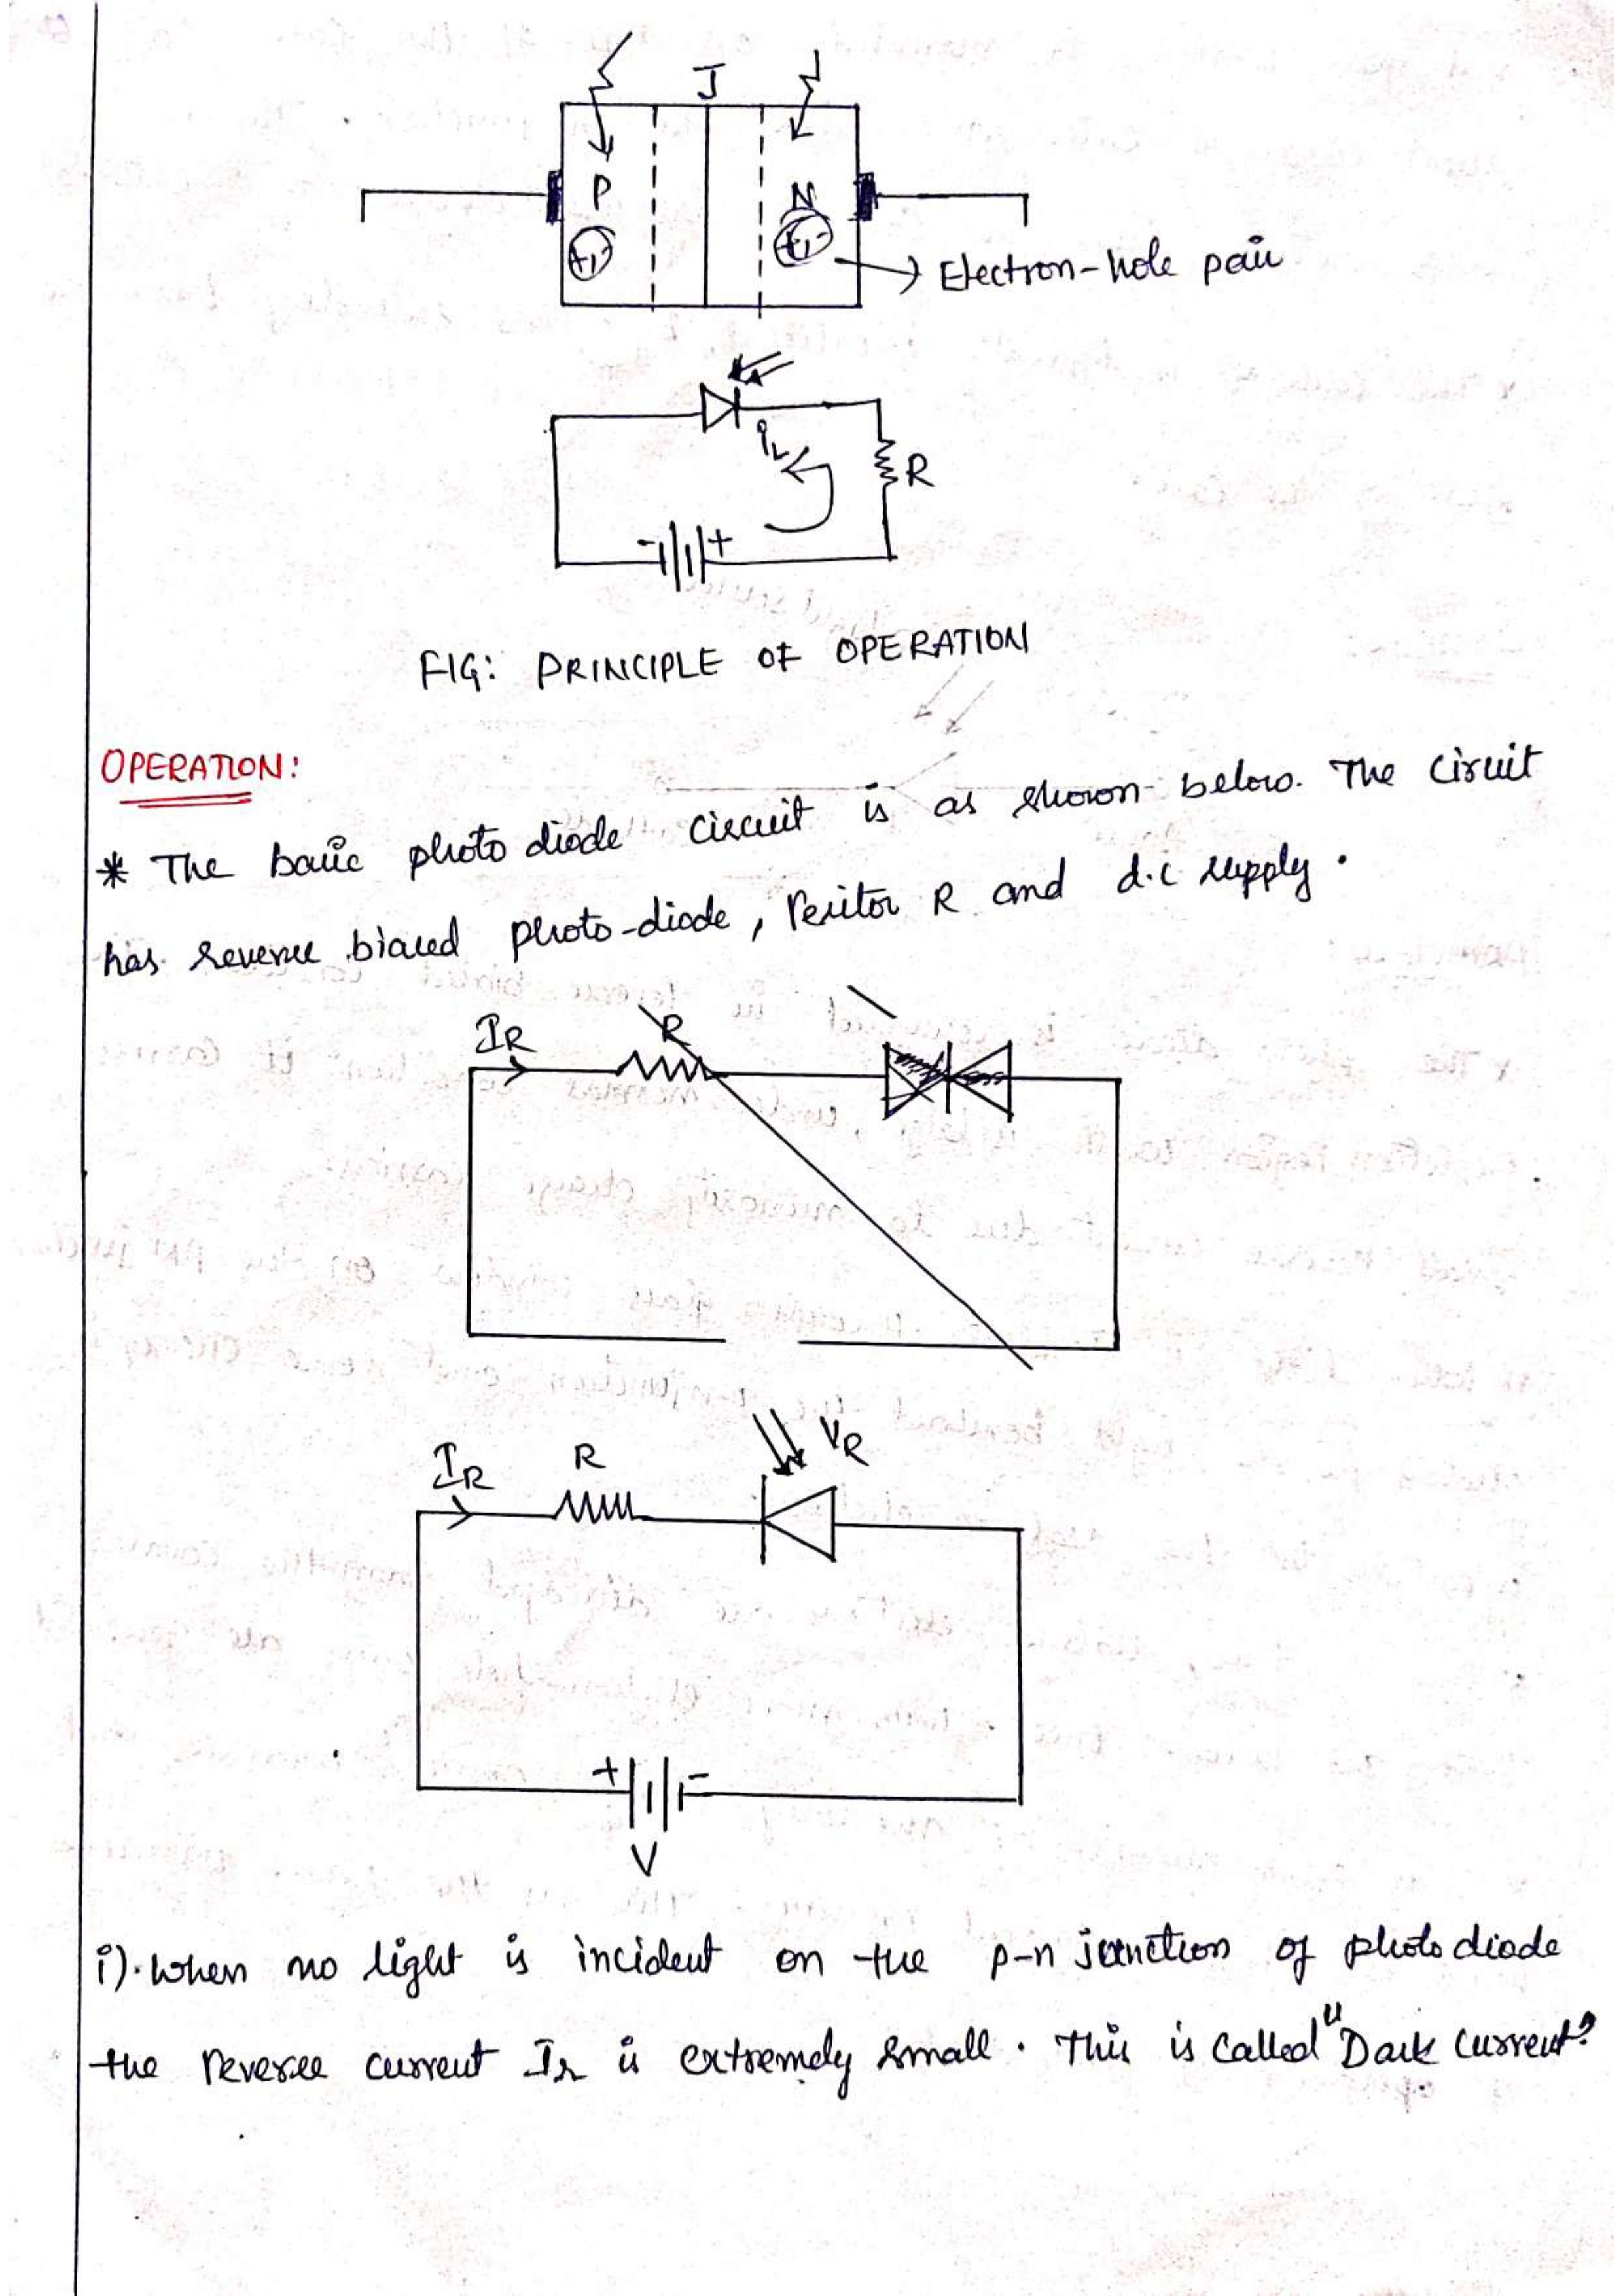 J
P N
+,- +,-
Electron-hole pair
iL
R
- +
FIG: PRINCIPLE OF OPERATION
OPERATION:
* The basic photo diode circuit is as shown below. The circuit
has reverse biased photo-diode, resitor R and d.c supply.
IR R
IR R VR
+ -
V
i). When no light is incident on the p-n junction of photo diode
the reverse current Ir is extremely small. This is called "Dark current"